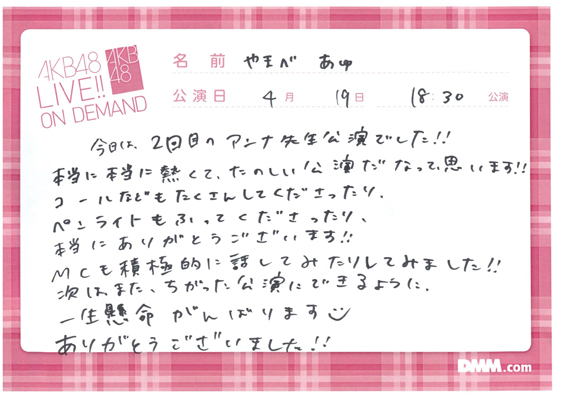 AKB48
LIVE!!
ON DEMAND
AKB
48
名 前 やまべ あゆ
公演日 4月 19日 18:30 公演
今日は、2回目のアンナ先生公演でした!!
本当に本当に熱くて、たのしい公演だなって、思います!!
コールなどもたくさんしてくださったり、
ペンライトもふってくださったり、
本当にありがとうございます!!
MCも積極的に話してみたりしてみました!!
次は、また、ちがった公演にできるように、
一生懸命がんばります
ありがとうございました!!
DMM.com